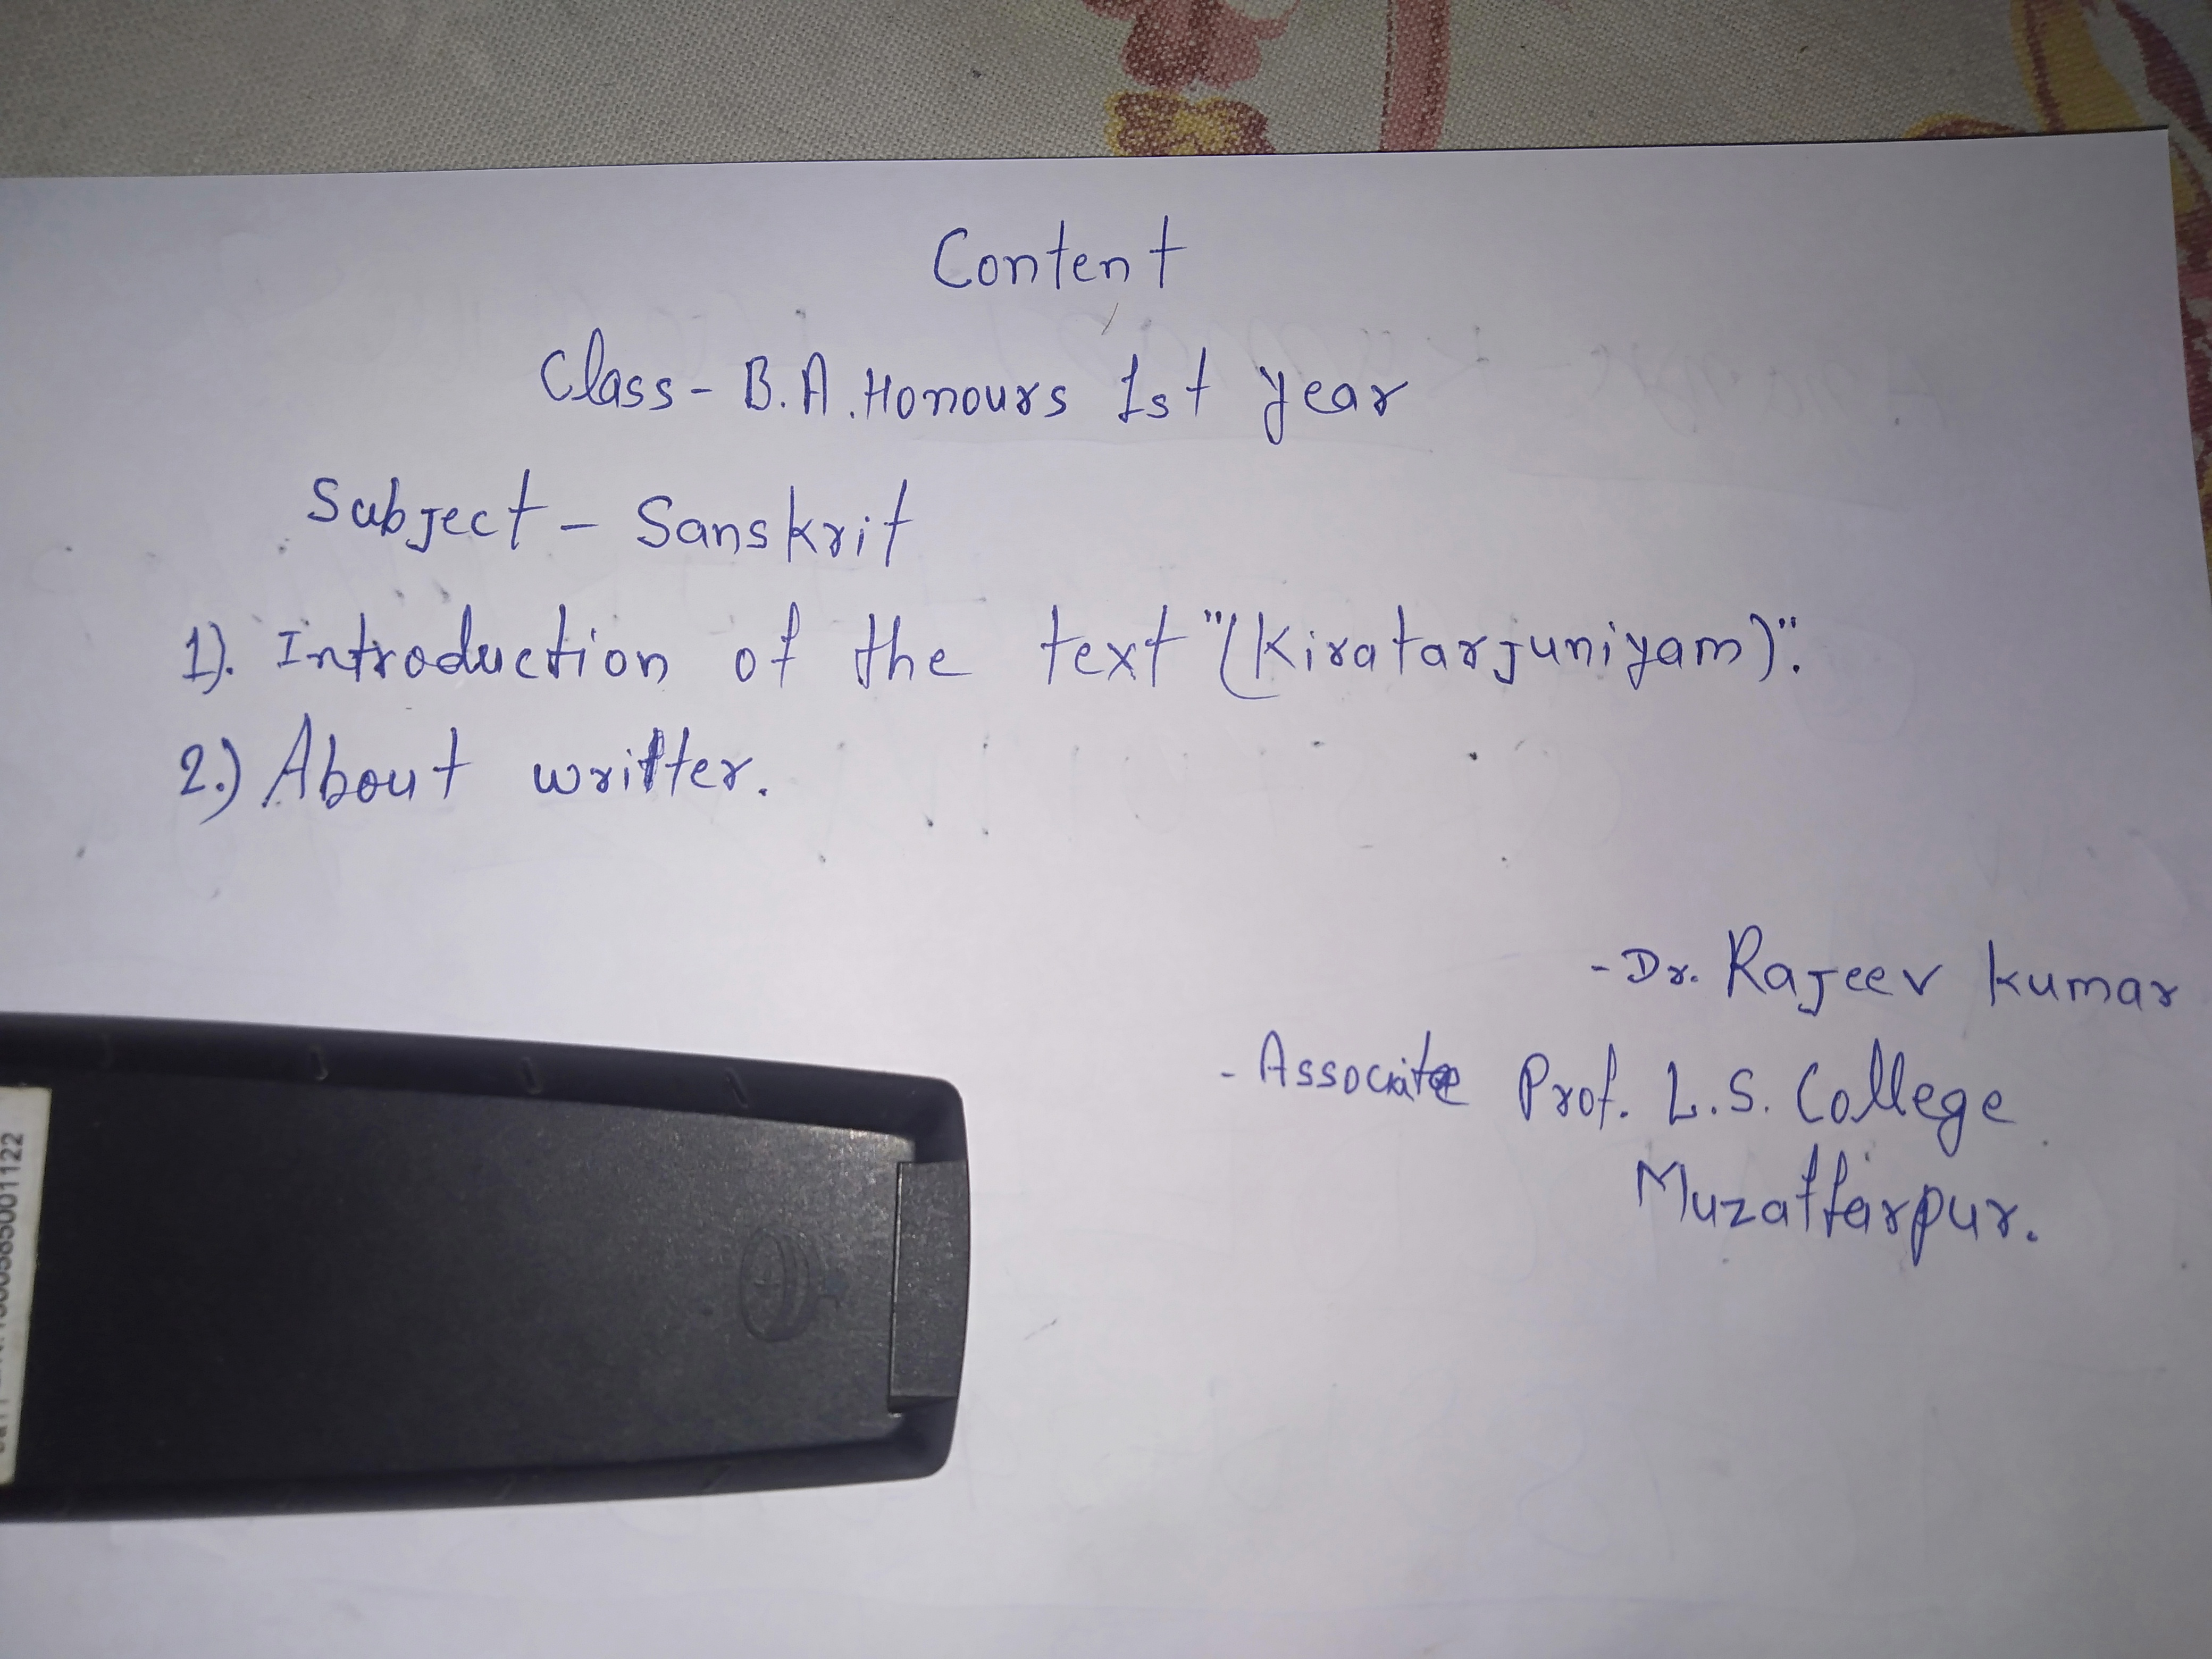 Content
Class- B.A. Honours 1st year
Subject - Sanskrit
1). Introduction of the text "(Kiratarjuniyam)".
2.) About writter.
- Dr. Rajeev kumar
- Associate Prof. L.S. College
Muzaffarpur.